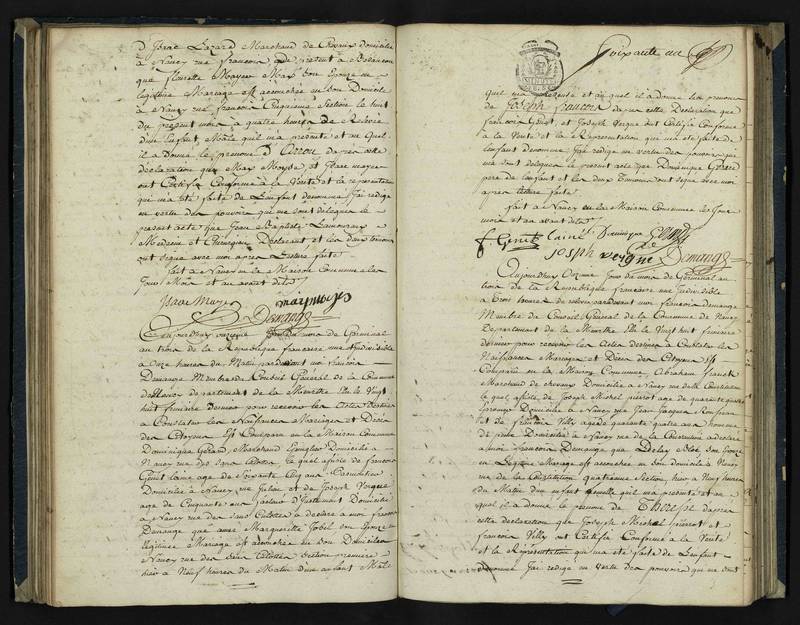 d'Isaac Lazard Marchand de Chevaux domicilié
à Nancy rue
que Mayer Max son épouse en
légitime Mariage est accouchée en son Domicile
à Nancy rue Cinquième Section le huit
du présent mois à quatre heures de Relevée
d'un Enfant Mâle qu'il m'a présenté et au Quel
il a donné le prénom d' Aaron d'après cette
déclaration que Max Moyse et Isaac mayer
ont Certifié Conforme à la Vérité et la représentation
qui m'a été faite de L'enfant denommé J'ai rédigé
en vertu des pouvoirs qui me sont délégués le
présent acte que Jean Baptiste Lamoureux
Médecin et Chirurgien Déclarant et les deux témoins
ont signé avec moi après Lecture faite
fait à Nancy en la Maison Commune les
Jour Mois et an avant dits
Isaac Mayer marx moyes
Demange
Aujourdhuy onzieme Jour du mois de Germinal
au trois de la Republique francaise une Indivisible
à Onze heures du Matin pardevant moi francois
Demange Membre du Conseil Général de la Commune
de Nancy departement de la Meurthe Elu le Vingt
huit frimaire dernier pour recevoir les Actes Destinés
à Constater les Naissances Mariages et Décès
des Citoyens Est Comparu en la Maison Commune
Dominique Gerard Marchand Domicilié à
Nancy rue des sans Culottes lequel assisté de francois
Genit lainé age de Soixante Cinq ans
Domicilié à Nancy rue et de Joseph Vergne
age de Cinquante ans Domicilié
à Nancy rue des Sans Culottes a déclaré à moi francois
Demange que anne Marguerite Jobel son épouse en
légitime Mariage est accouchée en son Domicile à
Nancy rue des sans Culottes Section première
hier à Neuf heures du Matin d'un enfant Mâle
Soixante un
quil m'a présenté et au quel il a donné les prénoms
de Joseph francois d'après cette Déclaration que
francois Genit, et Joseph Vergne ont Certifié Conforme
à la Vérité et la Représentation qui m'a été faite de
lenfant denommé Jai redigé en vertu des pouvoirs qui
me sont délégués le présent acte que Dominique Gerard
père de lenfant et les deux Témoins ont signé avec moi
après lecture faite
fait à Nancy en la Maison Commune les Jour
mois et an avant dits
f. Genit lainé Dominique Gerard
joseph vergne Demange
Aujourdhuy Onzieme Jour du mois de Germinal au
trois de la Republique francaise une Indivisible
à trois heures de relevée pardevant moi francois demange
Membre du Conseil General de la Commune de Nancy
Departement de la Meurthe Elu le Vingt huit frimaire
dernier pour recevoir les Actes destinés à Constater les
Naissances Mariages et Décès des Citoyens Est
Comparu en la Maison Commune, Abraham
Marchand de chevaux Domicilié à Nancy rue de la Constitution
le quel assisté de Joseph Michel pierrot age de quarante
Domicilié à Nancy rue Jean Jacques Rousseau
et de francois Villy agé de quarante quatre ans homme
de Domicilié à Nancy rue de la Constitution a déclaré
à moi francois Demange que son épouse
en Légitime Mariage est accouchée en son domicile à Nancy
rue de la Constitution quatrieme Section, hier à Neuf heures
du Matin d'un enfant femelle quil m'a présenté et au
quel il a donné le prénom de Therese d'après
cette déclaration que Joseph Michel pierrot et
francois Villy ont Certifié Conforme à la Vérité
et la Représentation qui m'a été faite de L'enfant
denommé Jai redigé en Vertu des pouvoirs qui me sont